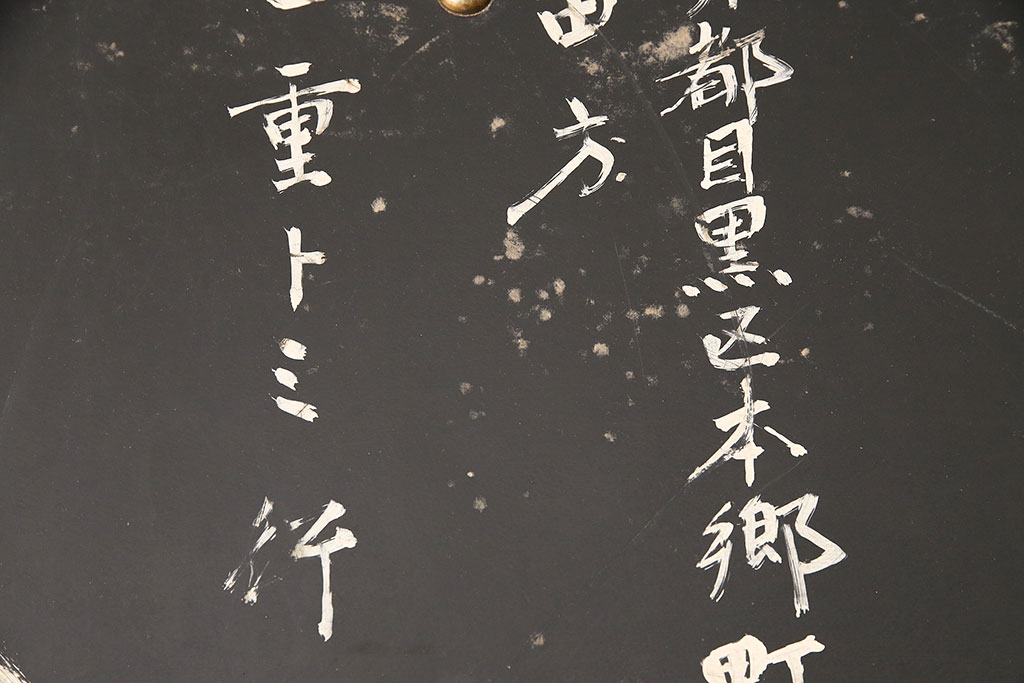 都目黒区本郷町
田方
重トミ行